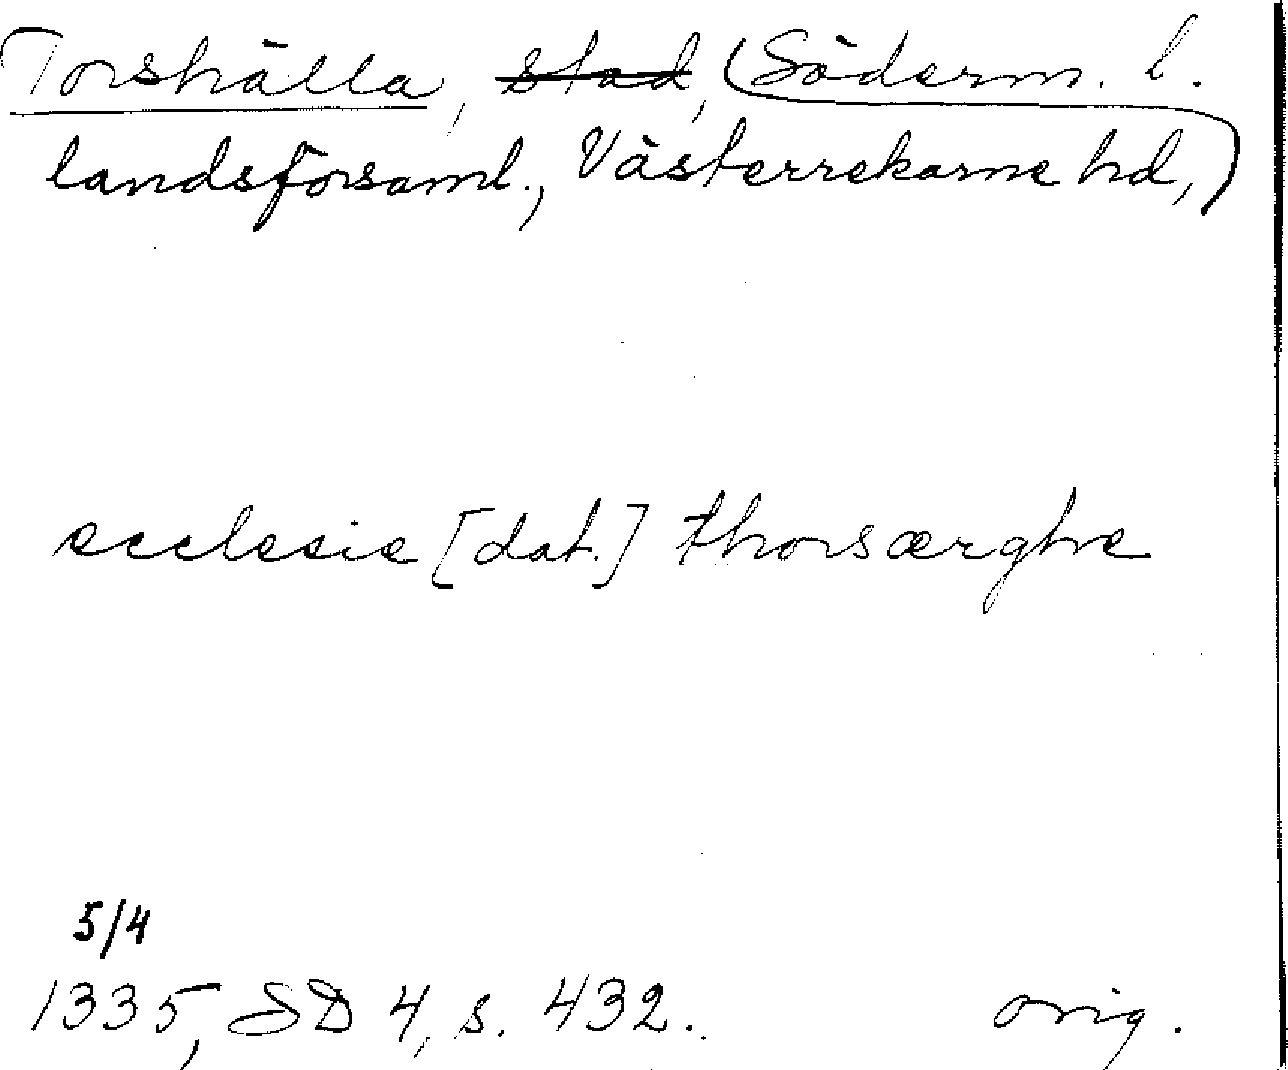 Torshälla, stad, (Söderm. l.
landsförsaml., Västerrekarne hd,)
ecclesie [dat.] thorsærghe
5/4
1335, SD 4, s. 432. orig.